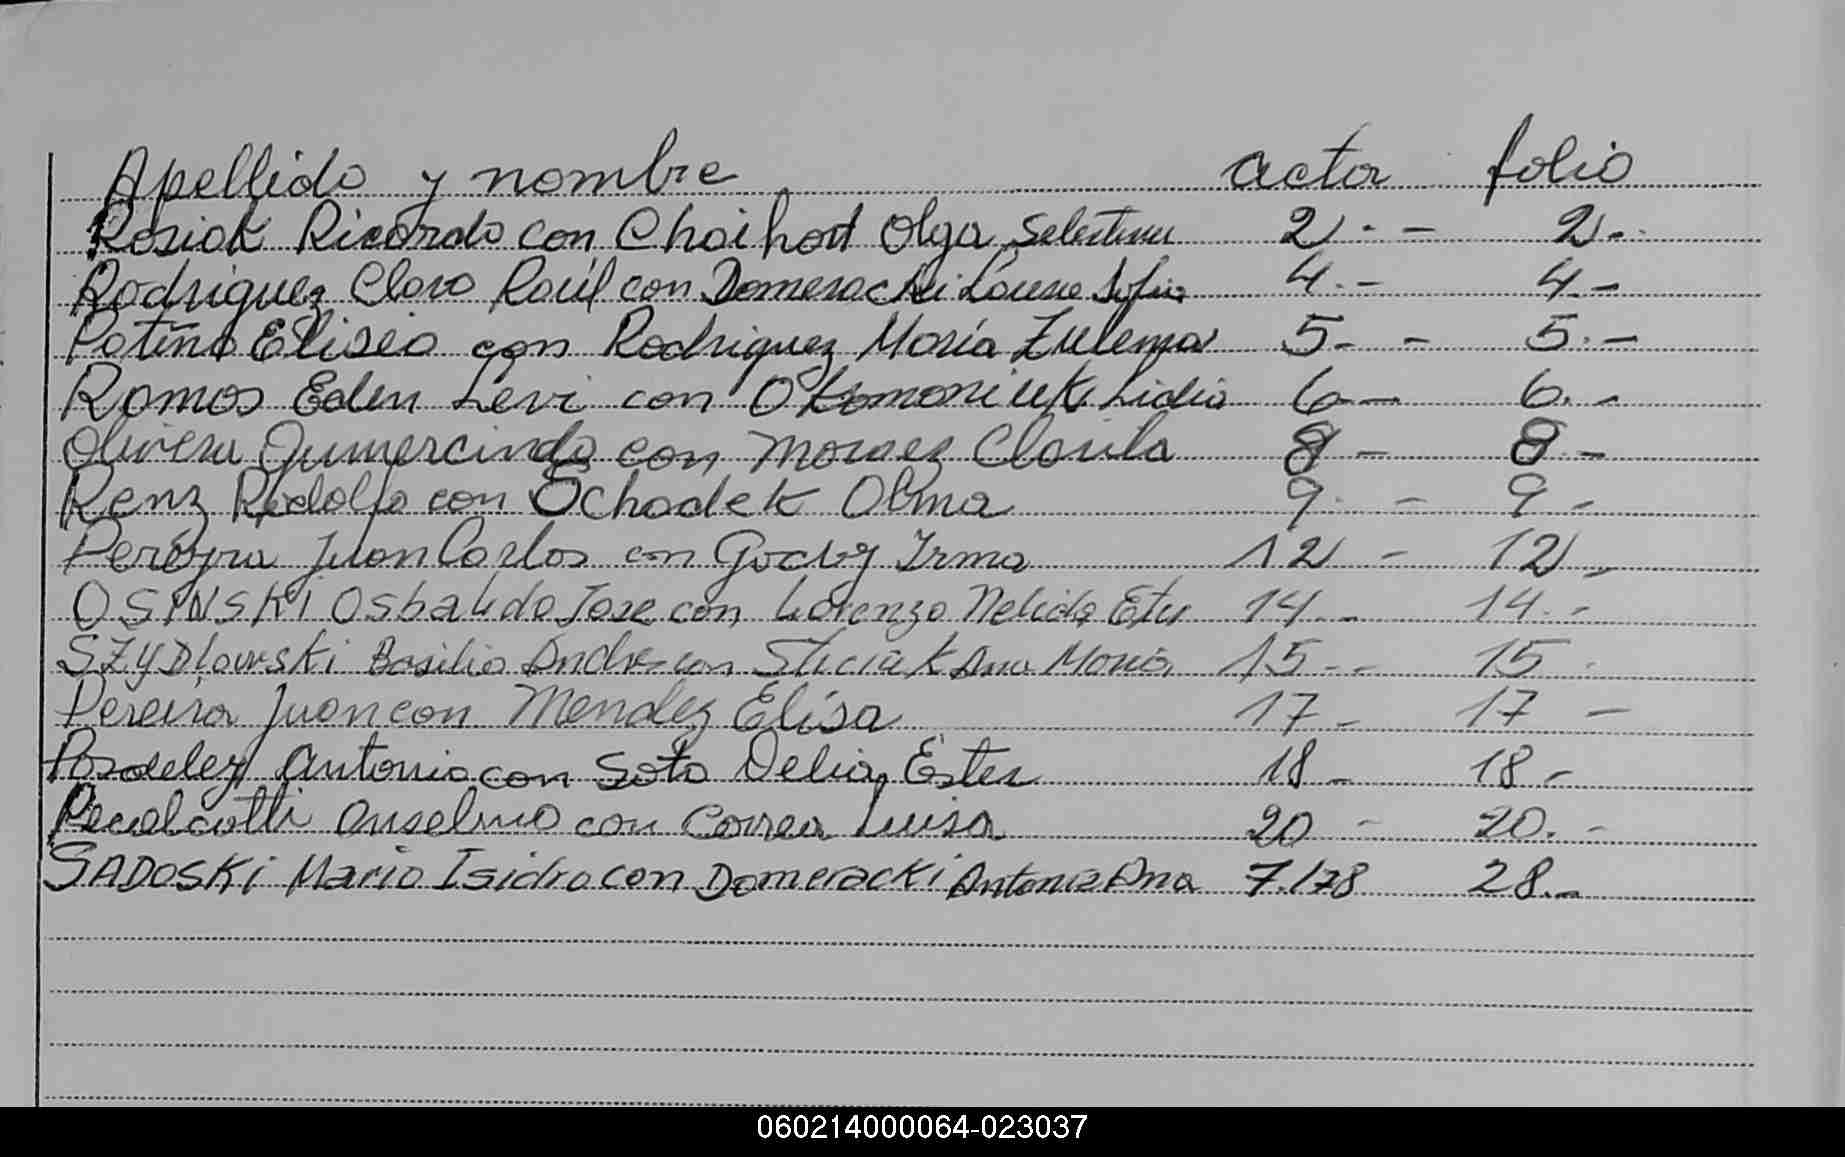 Apellido y nombre acta folio
Rosiak Ricardo con Chaihod Olga 2 - 2 -
Rodriguez Claro Raúl con Domeracki Sofia 4 - 4 -
Patiño Eliseo con Rodriguez María Zulema 5 - 5 -
Ramos Eden Levi con Lidia 6 - 6 -
Olivera Gumercindo con Moraez Clarila 8 - 8 -
Renz Rodolfo con Ochodek Olma 9 - 9 -
Pereyra Juan Carlos con Godoy Irma 12 - 12 -
OSINSKI Osbaldo Jose con Lorenzo Nelida 14 - 14 -
SZYDlowski Basilio Andres con Ana Maria 15 - 15
Pereira Juan con Mendez Elisa 17 - 17 -
Antonio con Soto Delia Ester 18 - 18 -
Anselmo con Correa Luisa 20 - 20 -
SADOSKi Mario Isidro con Domeracki Antonia Ana 7/78 28 -
060214000064-023037